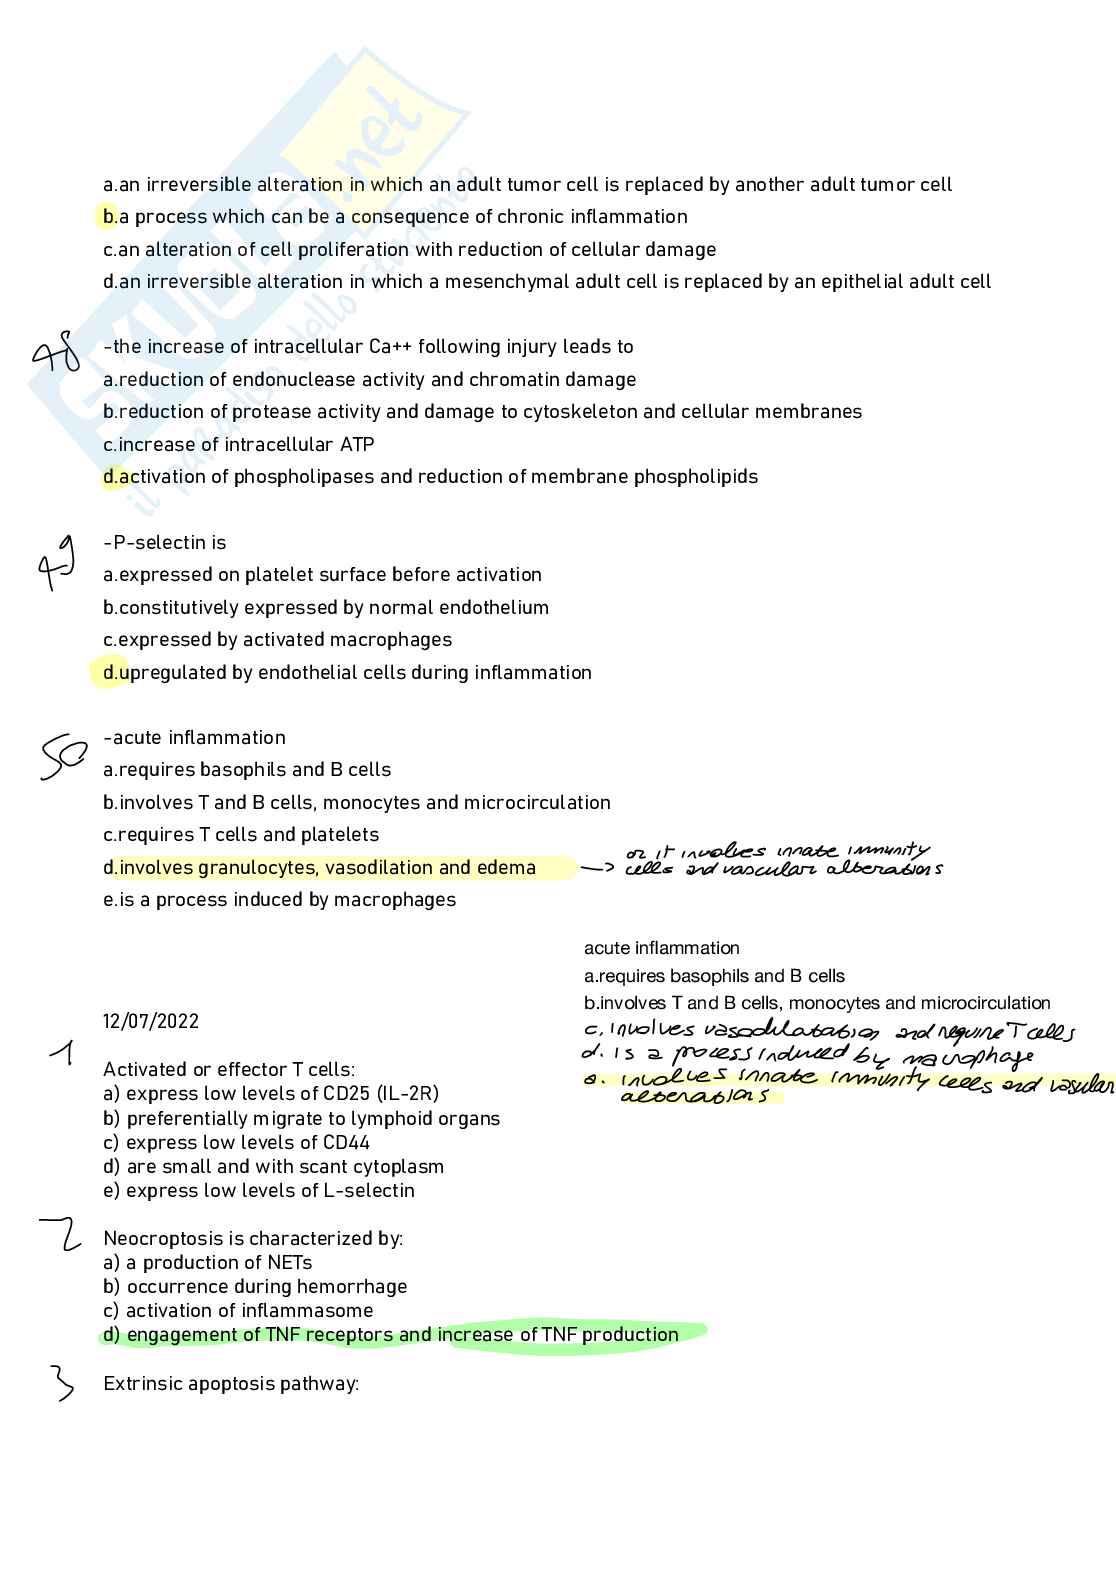 SKUOLA.net
il paradiso dello studente
a.an irreversible alteration in which an adult tumor cell is replaced by another adult tumor cell
b.a process which can be a consequence of chronic inflammation
c.an alteration of cell proliferation with reduction of cellular damage
d.an irreversible alteration in which a mesenchymal adult cell is replaced by an epithelial adult cell
48
-the increase of intracellular Ca++ following injury leads to
a.reduction of endonuclease activity and chromatin damage
b.reduction of protease activity and damage to cytoskeleton and cellular membranes
c.increase of intracellular ATP
d.activation of phospholipases and reduction of membrane phospholipids
49
-P-selectin is
a.expressed on platelet surface before activation
b.constitutively expressed by normal endothelium
c.expressed by activated macrophages
d.upregulated by endothelial cells during inflammation
50
-acute inflammation
a.requires basophils and B cells
b.involves T and B cells, monocytes and microcirculation
c.requires T cells and platelets
d.involves granulocytes, vasodilation and edema
-> or it involves innate immunity
cells and vascular alterations
e.is a process induced by macrophages
acute inflammation
a.requires basophils and B cells
b.involves T and B cells, monocytes and microcirculation
c. involves vasodilatation and require T cells
d. is a process induced by macrophage
e. involves innate immunity cells and vascular
alterations
12/07/2022
1
Activated or effector T cells:
a) express low levels of CD25 (IL-2R)
b) preferentially migrate to lymphoid organs
c) express low levels of CD44
d) are small and with scant cytoplasm
e) express low levels of L-selectin
2
Neocroptosis is characterized by:
a) a production of NETs
b) occurrence during hemorrhage
c) activation of inflammasome
d) engagement of TNF receptors and increase of TNF production
3
Extrinsic apoptosis pathway: